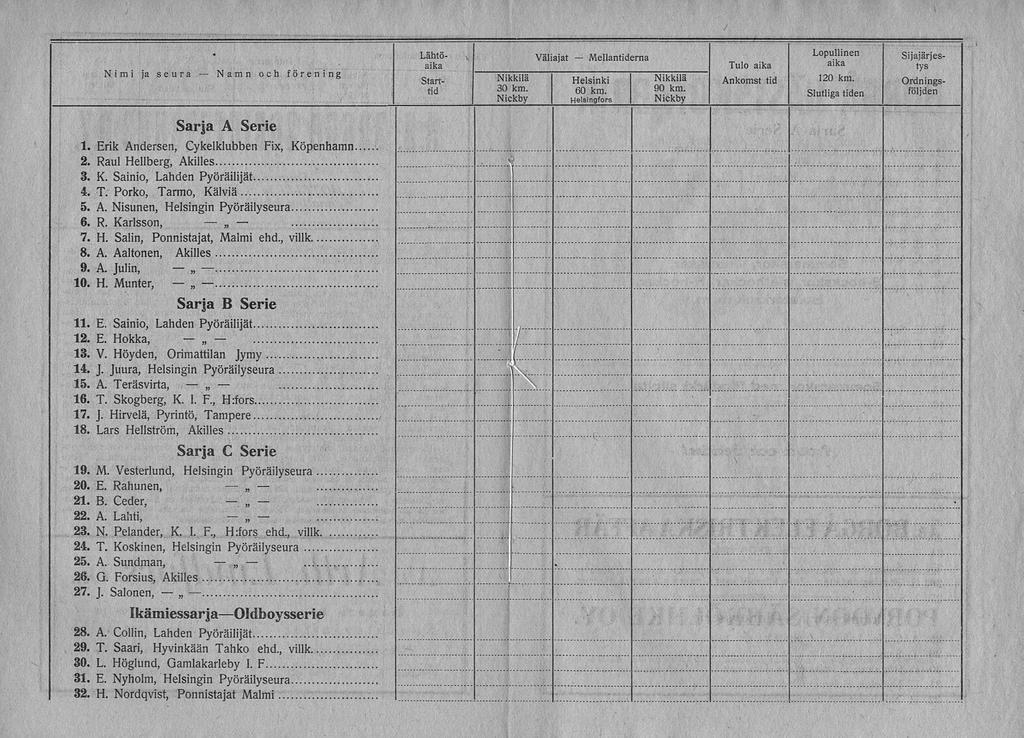 Nimi ja seura — Namn och förening
Lähtö-
aika
Start-
tid
Väliajat — Mellantiderna
Nikkilä
30 km.
Nickby
Helsinki
60 km.
Helsingfors
Nikkilä
90 km.
Nickby
Tulo aika
Ankomst tid
Lopullinen
aika
120 km.
Slutliga tiden
Sijajärjes-
tys
Ordnings-
följden
Sarja A Serie
1. Erik Andersen, Cykelklubben Fix, Köpenhamn......
2. Raul Hellberg, Akilles
3. K. Sainio, Lahden Pyöräilijät
4. T. Porko, Tarmo, Kälviä
5. A. Nisunen, Helsingin Pyöräilyseura
6. R. Karlsson, — „ —
7. H. Salin, Ponnistajat, Malmi ehd., villk.
8. A. Aaltonen, Akilles
9. A. Julin, — „ —
10. H. Munter, — „ —
Sarja B Serie
11. E. Sainio, Lahden Pyöräilijät
12. E. Hokka, — „ —
13. V. Höyden, Orimattilan Jymy
14. J. Juura, Helsingin Pyöräilyseura
15. A. Teräsvirta, — „ —
16. T. Skogberg, K. I. F., H:fors
17. J. Hirvelä, Pyrintö, Tampere
18. Lars Hellström, Akilles
Sarja C Serie
19. M. Vesterlund, Helsingin Pyöräilyseura
20. E. Rahunen, — „ —
21. B. Ceder, — „ —
22. A. Lahti, — „ —
23. N. Pelander, K. I. F., H:fors ehd., villk.
24. T. Koskinen, Helsingin Pyöräilyseura
25. A. Sundman, — „ —
26. G. Forsius, Akilles
27. J. Salonen, — „ —
Ikämiessarja—Oldboysserie
28. A. Collin, Lahden Pyöräilijät
29. T. Saari, Hyvinkään Tahko ehd., villk.
30. L. Höglund, Gamlakarleby I. F.
31. E. Nyholm, Helsingin Pyöräilyseura
32. H. Nordqvist, Ponnistajat Malmi